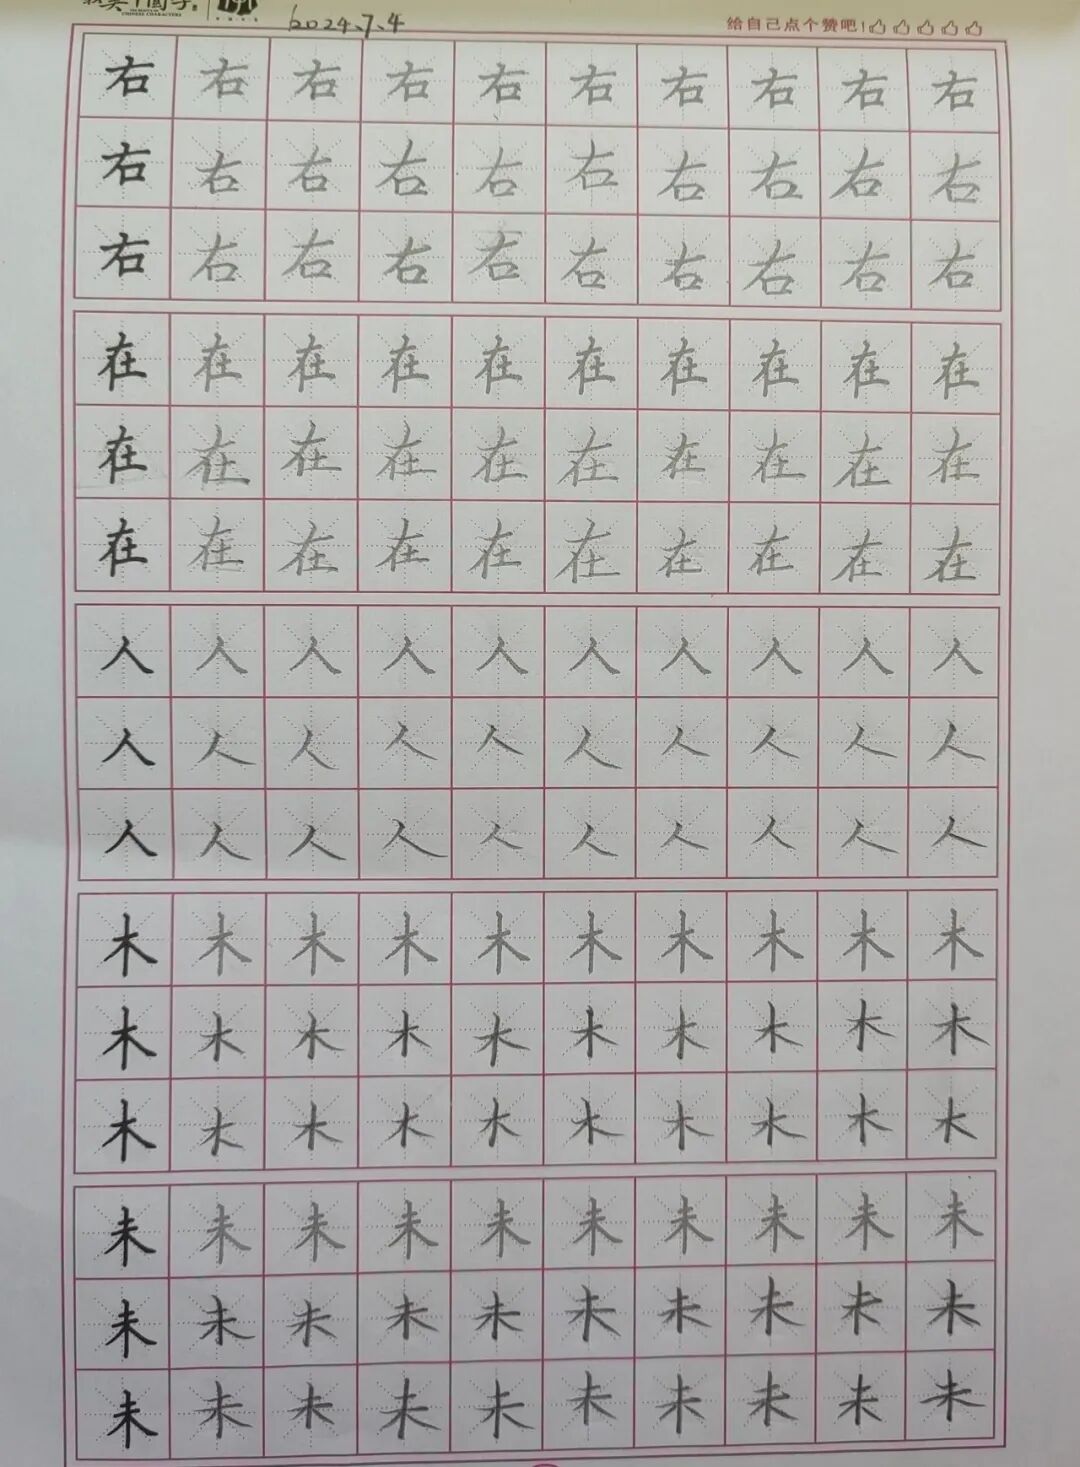 CHINESE CHARACTERS
2024.7.4
给自己点个赞吧!
右右右右右右右右右右
右右右右右右右右右右
右右右右右右右右右右
在在在在在在在在在在
在在在在在在在在在在
在在在在在在在在在在
人人人人人人人人人人
人人人人人人人人人人
人人人人人人人人人人
木木木木木木木木木木
木木木木木木木木木木
木木木木木木木木木木
未未未未未未未未未未
未未未未未未未未未未
未未未未未未未未未未